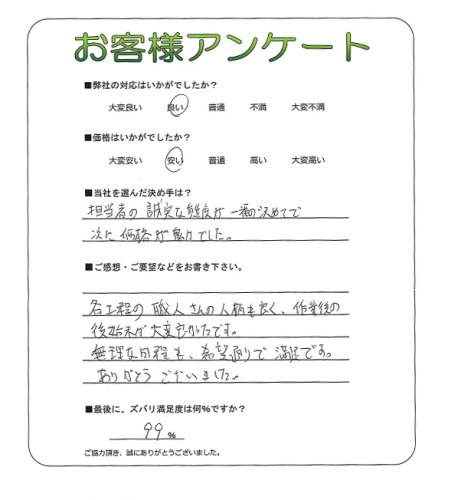 お客様アンケート
■弊社の対応はいかがでしたか？
大変良い 良い 普通 不満 大変不満
■価格はいかがでしたか？
大変安い 安い 普通 高い 大変高い
■当社を選んだ決め手は？
担当者の誠実な態度が一番の決めてで
次に価格が魅力でした。
■ご感想・ご要望などをお書き下さい。
各工程の職人さんの人柄も良く、作業後の
後始末が大変良かったです。
無理な日程も、希望通りで満足です。
ありがとうございました。
■最後に、ズバリ満足度は何%ですか？
99 %
ご協力頂き、誠にありがとうございました。